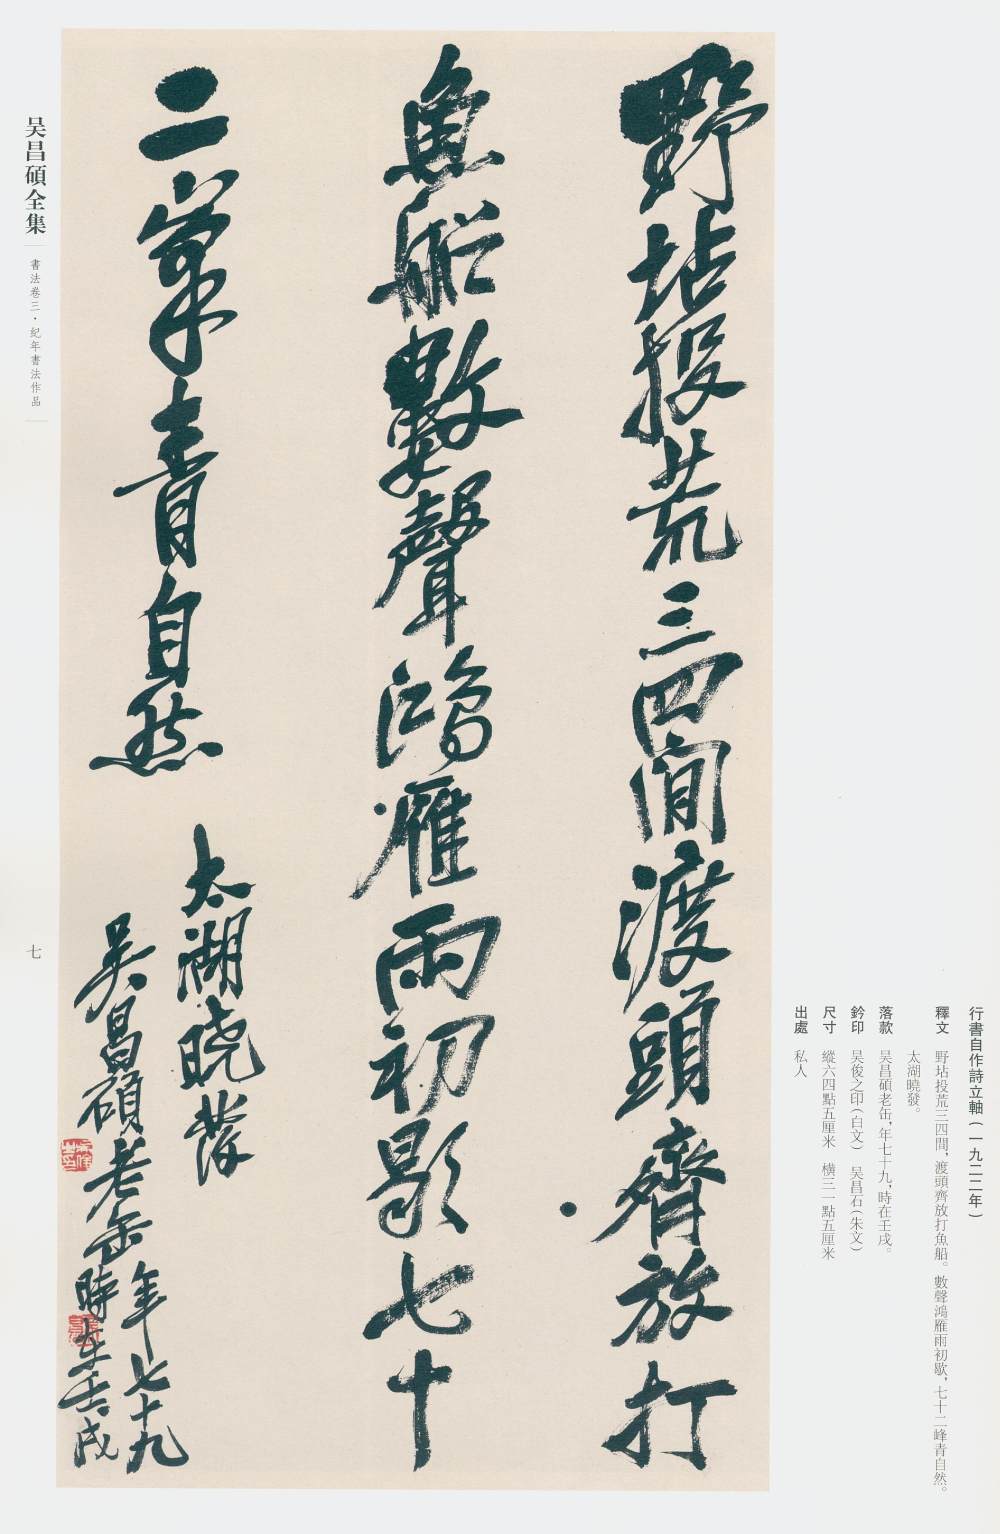 野坫投荒三四間渡頭齊放打
魚船數聲鴻雁雨初歇七十
二峯青自然
太湖曉發
吳昌碩老缶年七十九
時在壬戌
行書自作詩立軸(一九二二年)
釋文 野坫投荒三四間,渡頭齊放打魚船。數聲鴻雁雨初歇,七十二峰青自然。
太湖曉發。
落款 吴昌碩老缶,年七十九,時在壬戌。
鈐印 吴俊之印(白文) 吴昌石(朱文)
尺寸 縱六四點五厘米 橫三一點五厘米
出處 私人
吴昌碩全集
書法卷三·紀年書法作品
七